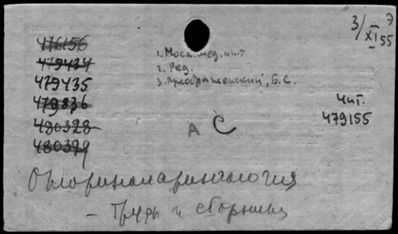 476156
479434
479435
479836
480328
480329
1. Моск. мед. инт
2. Ред.
3. Преображенский, Б.С.
3/XI 55
Чит.
479155
А С
Оториноларингология
– Труды и сборники